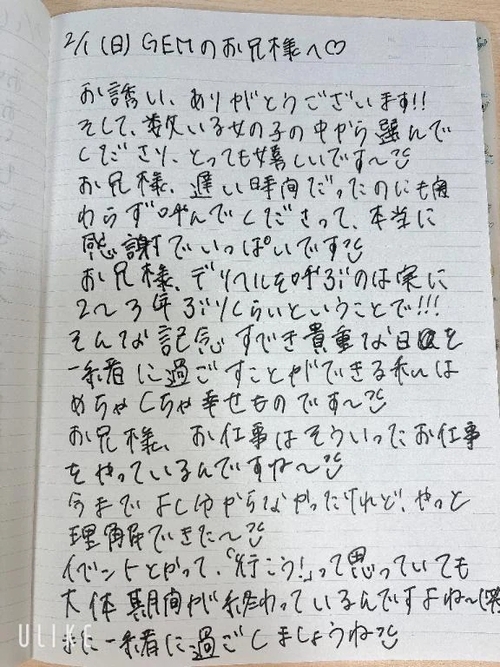 2/1(日) GEMのお兄様へ♡
お誘い、ありがとうございます!!
そして、数いる女の子の中から選んで
くださり、とっても嬉しいです〜
お兄様、遅い時間だったのにも関
わらず呼んでくださって、本当に
感謝でいっぱいです
お兄様、デリヘルを呼ぶのは実に
2〜3年ぶりくらいということで!!!
そんな記念すべき貴重な日を
一緒に過ごすことができる私は
めちゃくちゃ幸せものです〜
お兄様、お仕事はそういったお仕事
をやっているんですね〜
今までよくわからなかったけれど、やっと
理解できた〜
イベントとかって、「行こう!」って思っていても
大体期間が終わっているんですよね〜(笑)
また一緒に過ごしましょうね
ULIKE